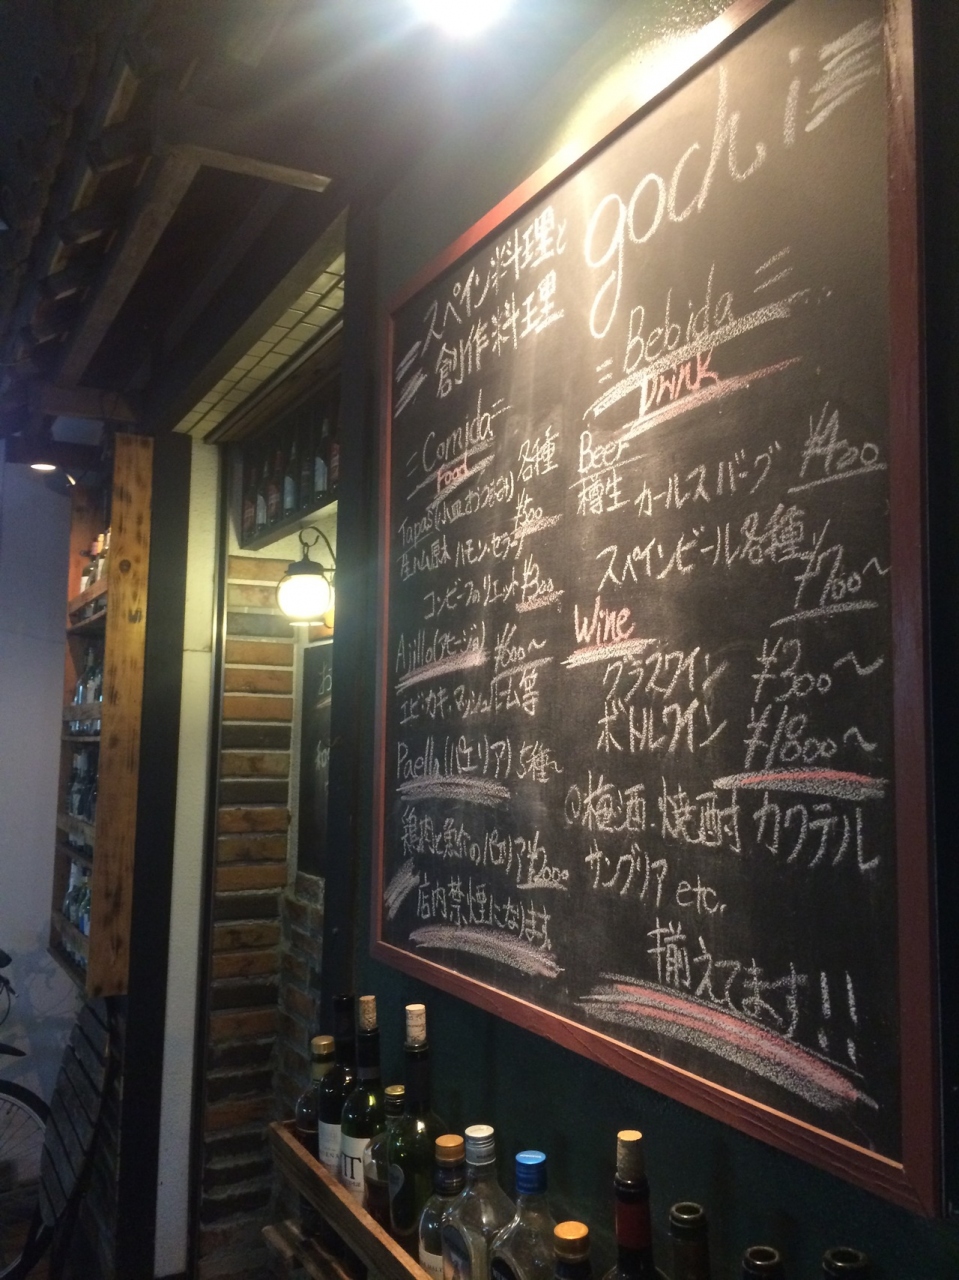 gochi
スペイン料理と
創作料理
Comida
Food
Tapas(小皿おつまみ)各種
¥500
生ハム原木 ハモン・セラーノ
コンビーフのリエット ¥300
Ajillo(アヒージョ) ¥600〜
エビ・カキ・マッシュルーム等
Paella(パエリア) 5種〜
鶏肉と魚介のパエリア ¥2000
店内禁煙になります
Bebida
Drink
Beer
樽生 カールスバーグ ¥400
スペインビール各種
¥760〜
Wine
グラスワイン ¥300〜
ボトルワイン ¥1800〜
梅酒・焼酎 カクテル
サングリア etc.
揃えてます!!